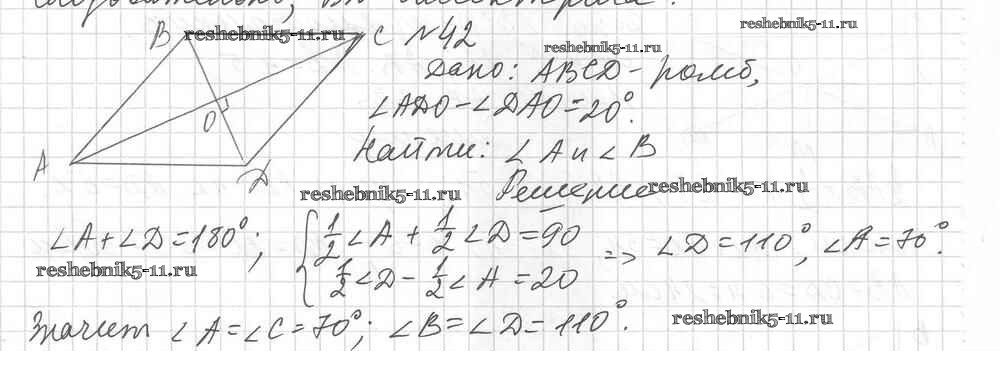 Вн биссектриса.
reshebnik5-11.ru
B reshebnik5-11.ru C №42
reshebnik5-11.ru
Дано: ABCD - ромб,
∠ADO - ∠DAO = 20°.
O
Найти: ∠A и ∠B
A D
Решение reshebnik5-11.ru
reshebnik5-11.ru
∠A + ∠D = 180°; { 1/2 ∠A + 1/2 ∠D = 90
1/2 ∠D - 1/2 ∠A = 20 => ∠D = 110°, ∠A = 70°.
reshebnik5-11.ru
Значит ∠A = ∠C = 70°; ∠B = ∠D = 110°.
reshebnik5-11.ru